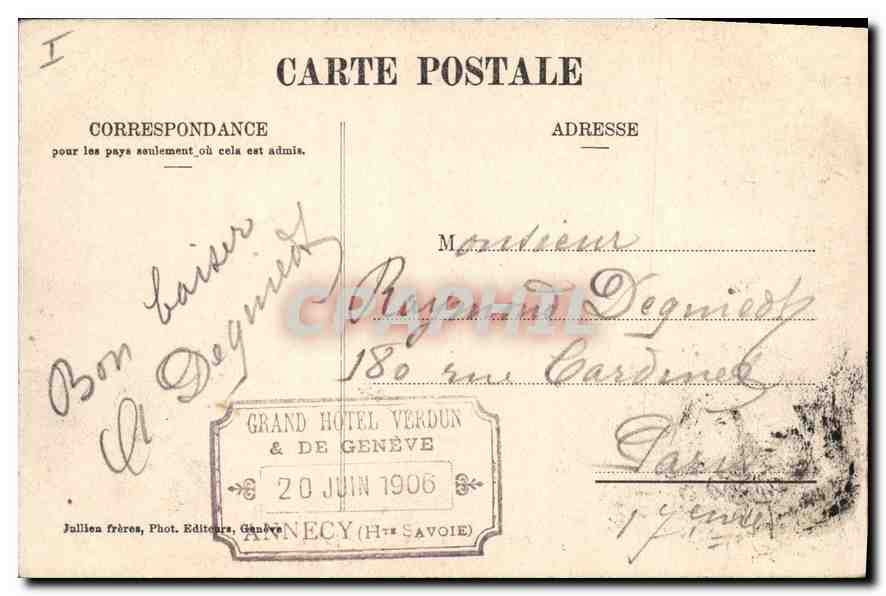 I
CARTE POSTALE
CORRESPONDANCE
pour les pays seulement où cela est admis.
ADRESSE
Bon baiser
Monsieur
Raymond
180 rue Cardinet
Paris
17
CPAPHIL
GRAND HOTEL VERDUN
& DE GENÈVE
20 JUIN 1906
ANNECY (HTE SAVOIE)
Jullien frères, Phot. Editeurs, Genève